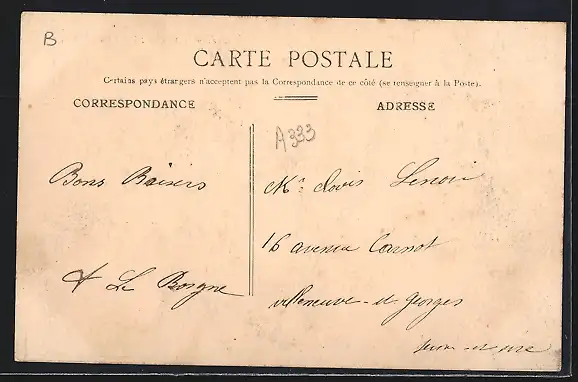 B
CARTE POSTALE
Certains pays étrangers n'acceptent pas la Correspondance de ce côté (se renseigner à la Poste).
CORRESPONDANCE
ADRESSE
A333
Bons Baisers
Le Borgne
Mr Clovis Lenoir
16 avenue Carnot
villeneuve-st-georges
seine-et-oise